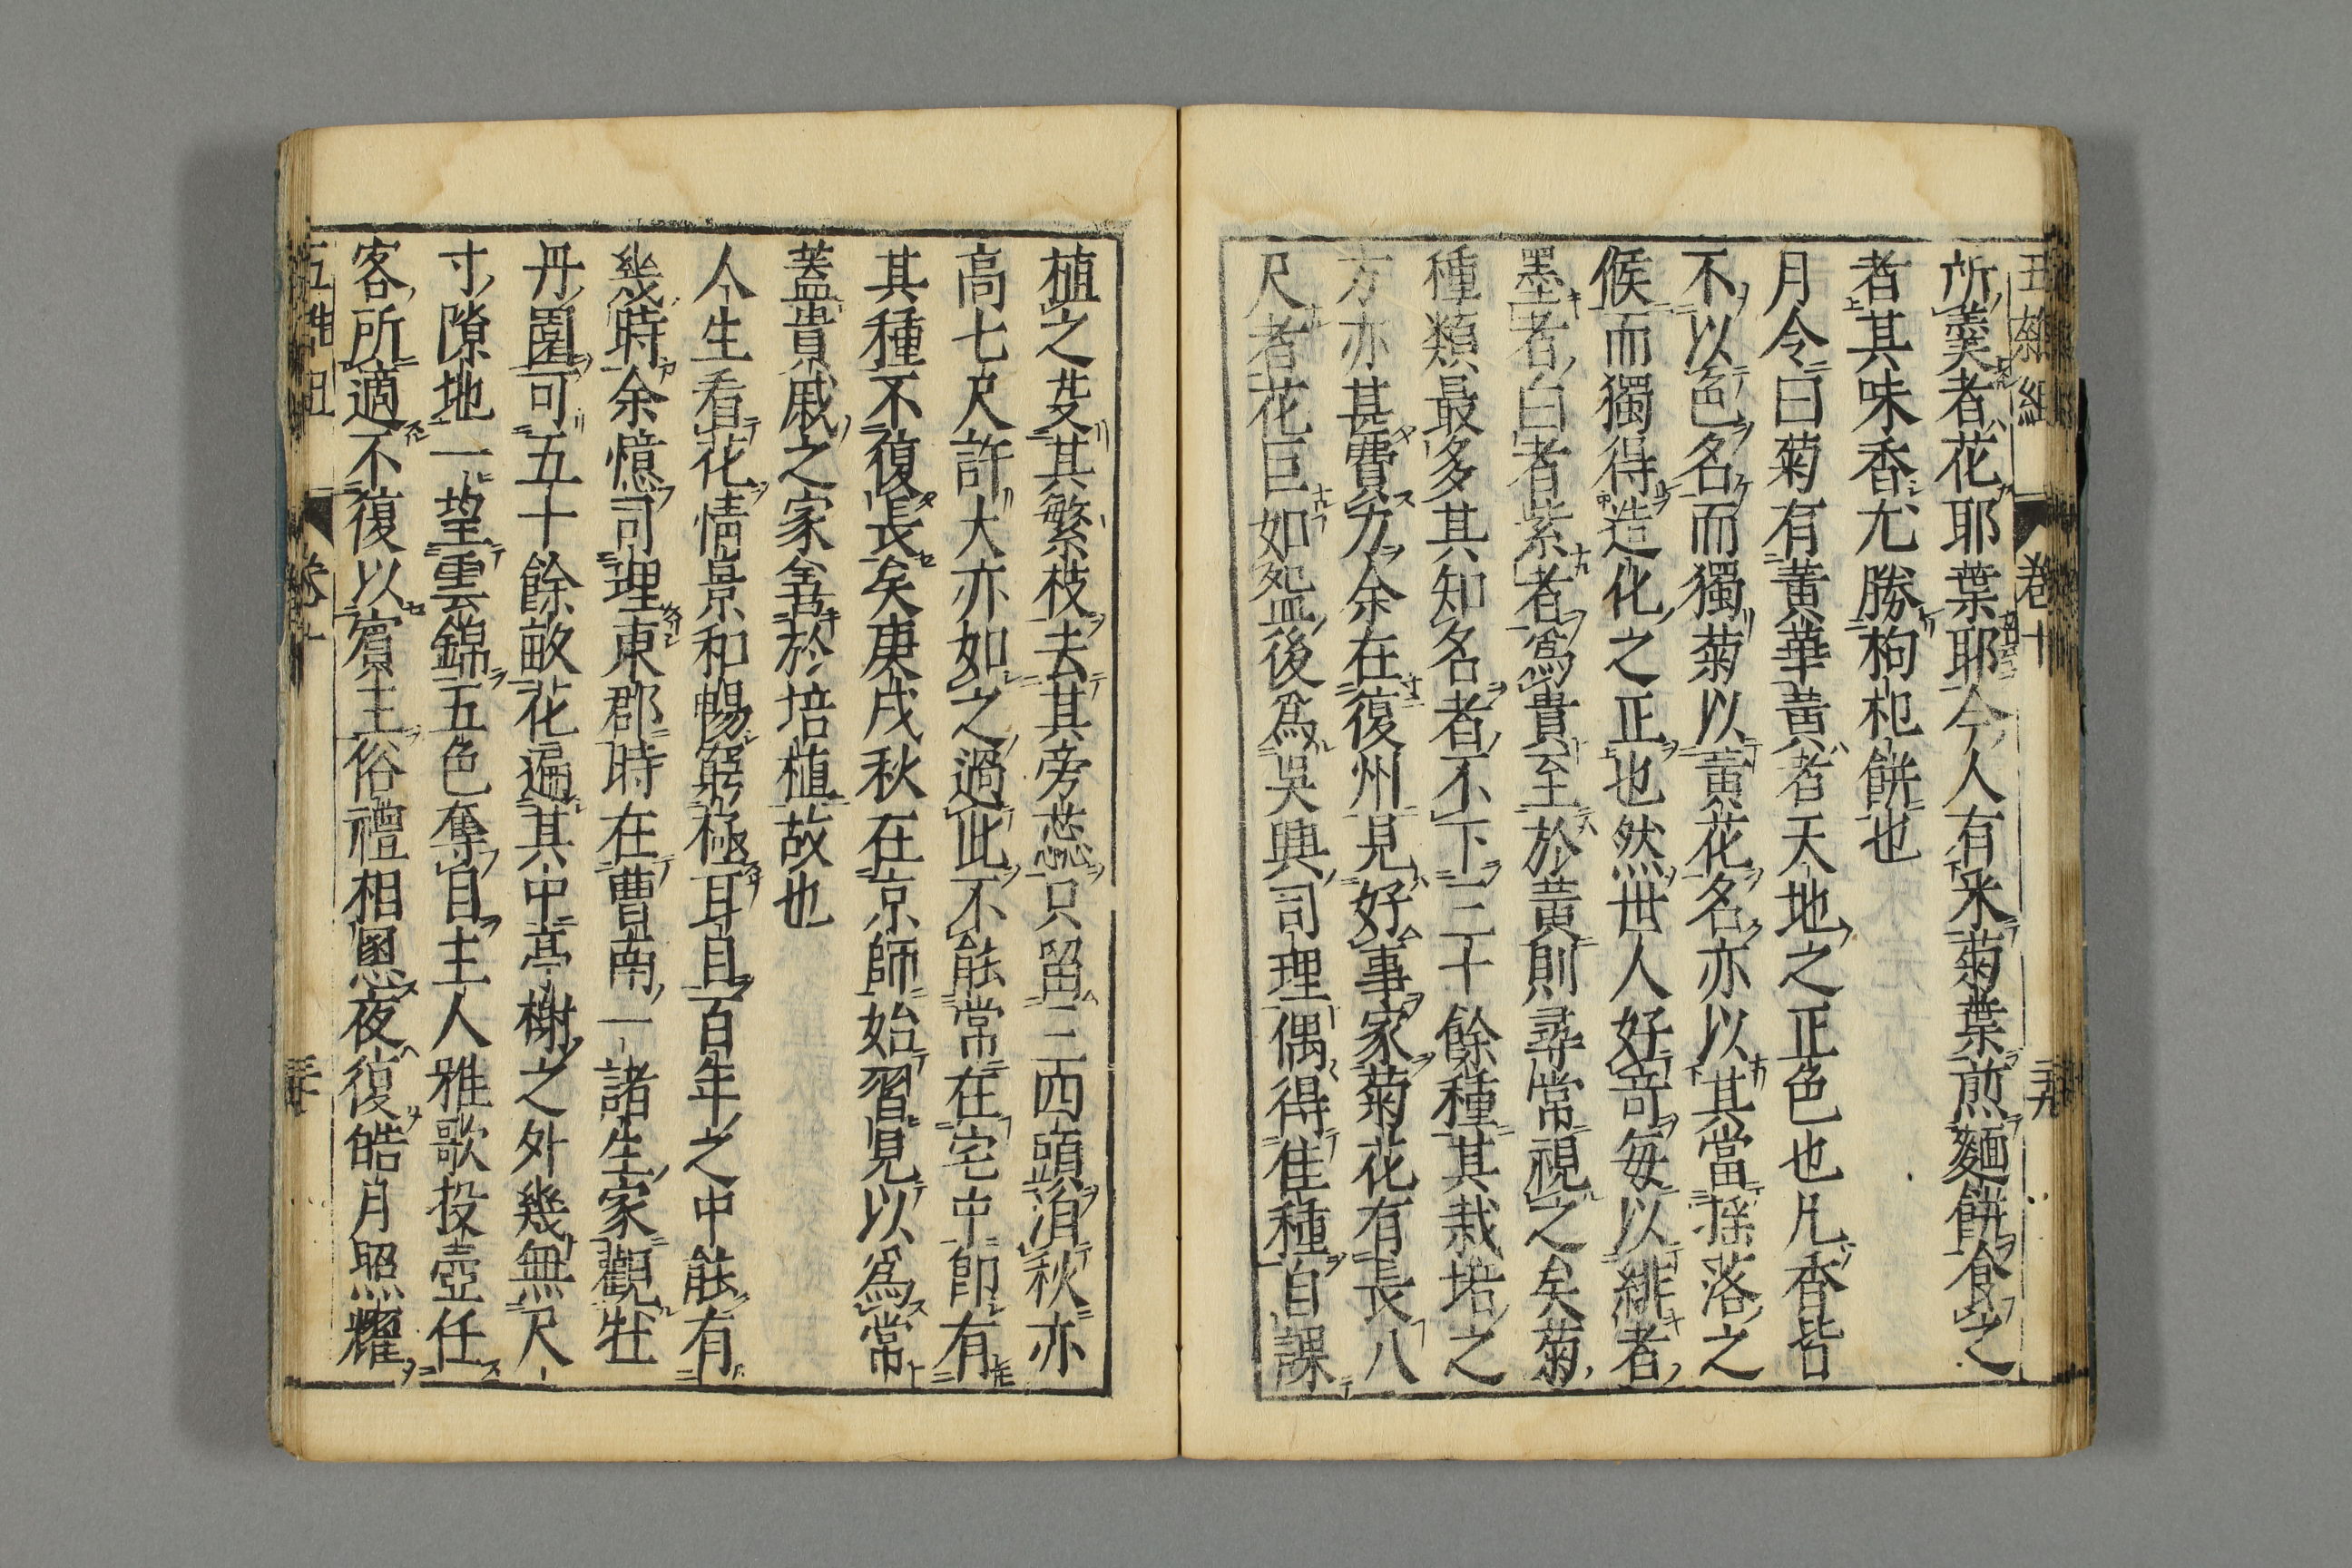 五雜組 卷十 三十九
所羹者花耶葉耶今人有采菊葉煎麵餅食之
者其味香尤勝枸杞餅也
月令曰菊有黃華黃者天地之正色也凡香皆
不以色名而獨菊以黃花名亦以其當搖落之
候而獨得造化之正也然世人好竒每以緋者
墨者白者紫者爲貴至於黃則尋常視之矣菊
種類最多其知名者不下三十餘種其栽培之
方亦甚費力余在復州見好事家菊花有長八
尺者花巨如盌後爲吳興司理偶得佳種自課
植之芟其繁枝去其旁蕊只留三四頭泊秋亦
高七尺許大亦如之過此不能常在宅中卽有
其種不復長矣庚戌秋在京師始習見以爲常
蓋貴戚之家善於培植故也
人生看花情景和暢窮極耳目百年之中能有
幾時余憶司理東郡時在曹南一諸生家觀牡
丹園可五十餘畝花遍其中亭榭之外幾無尺
寸隙地一望雲錦五色奪目主人雅歌投壺任
客所適不復以賓主俗禮相恩夜復皓月照耀
五雜組 卷十